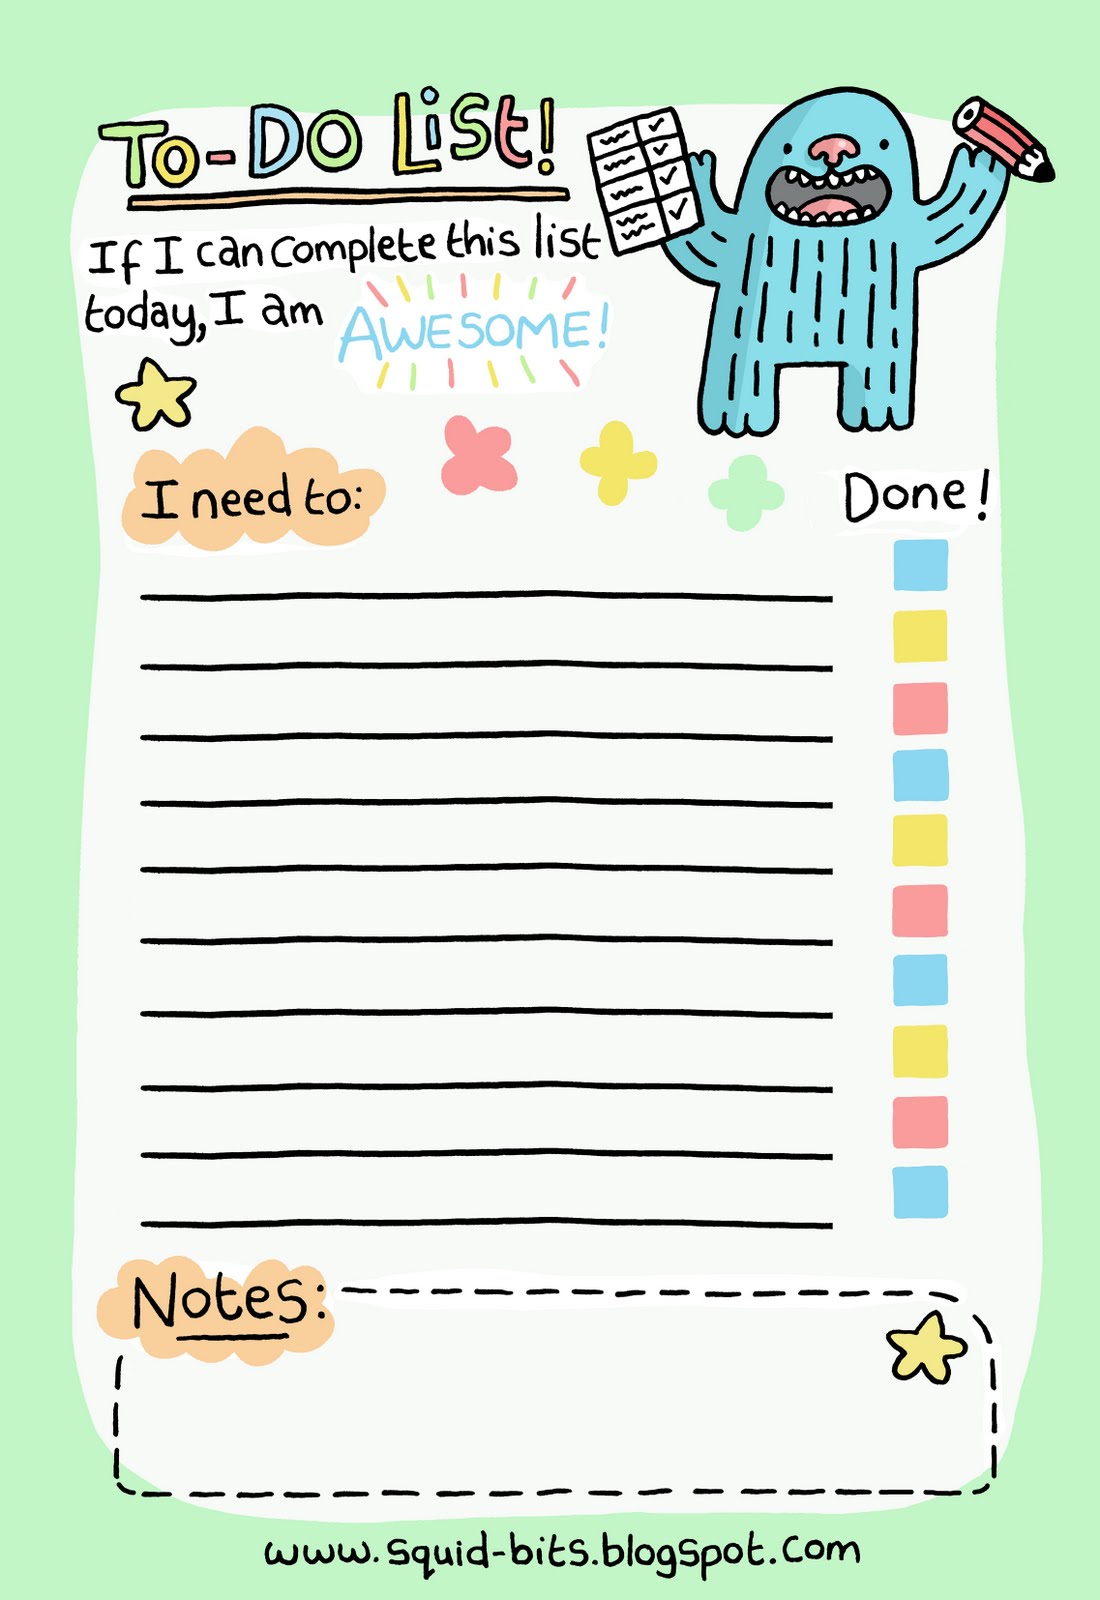 To-Do List!
If I can complete this list
today, I am AWESOME!
I need to:
Done!
Notes:
www.squid-bits.blogspot.com